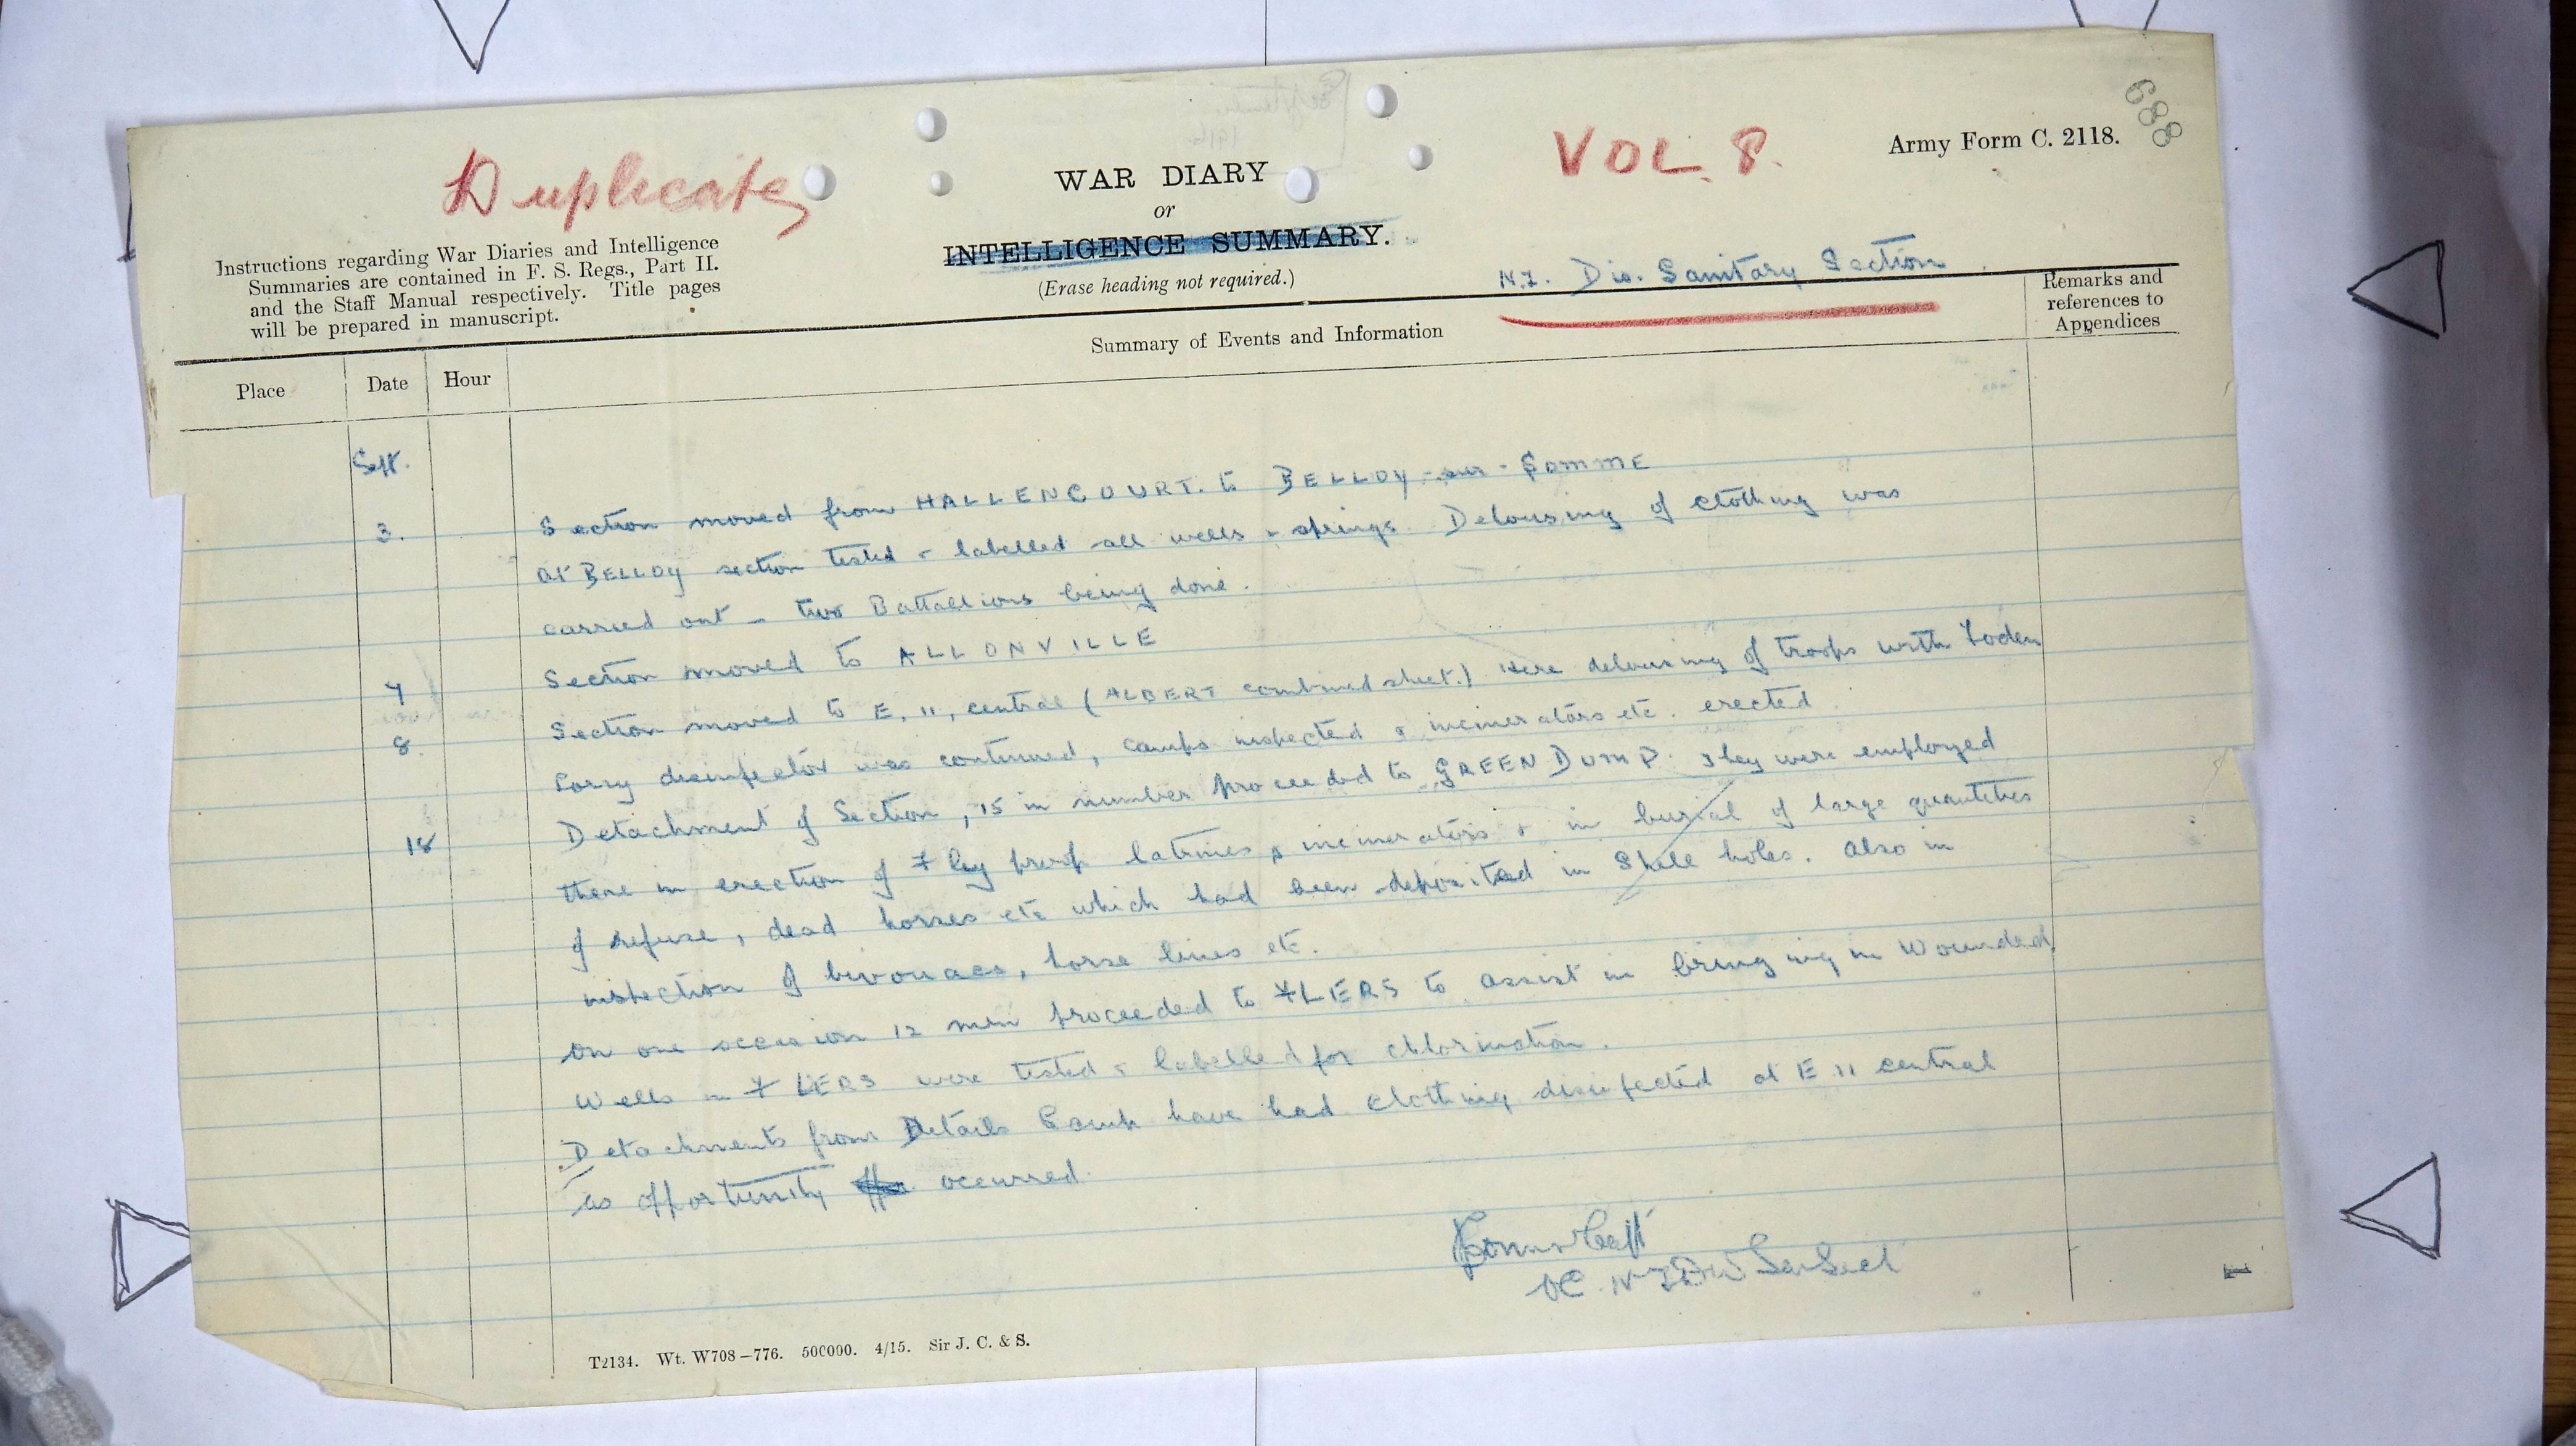 688
Duplicate
VOL 8.
Army Form C. 2118.
WAR DIARY
or
INTELLIGENCE SUMMARY.
(Erase heading not required.)
Instructions regarding War Diaries and Intelligence
Summaries are contained in F. S. Regs., Part II.
and the Staff Manual respectively. Title pages
will be prepared in manuscript.
N.Z. Div. Sanitary Section
Summary of Events and Information
Remarks and
references to
Appendices
Place
Date
Hour
Sept.
3. Section moved from HALLENCOURT. to BELLOY-sur-SOMME
At BELLOY section tested & labelled all wells & springs. Delousing of clothing was
carried out – two Battalions being done.
7 Section moved to ALLONVILLE
8. Section moved to E, 11, central (ALBERT combined sheet.) Here delousing of troops with Foden
Lorry disinfector was continued, camps inspected & incinerators etc. erected.
18 Detachment of Section, 15 in number proceeded to GREEN DUMP. They were employed
there in erection of Fly proof latrines & incinerators & in burial of large quantities
of refuse, dead horses etc which had been deposited in shell holes. Also in
inspection of bivouacs, horse lines etc.
On one occasion 12 men proceeded to FLERS to assist in bringing in wounded.
Wells in FLERS were tested & labelled for chlorination.
Detachments from Details Camp have had clothing disinfected at E 11 central
as opportunity occurred.
Capt
OC. NZ Div San Sect
T2134. Wt. W708–776. 500000. 4/15. Sir J. C. & S.